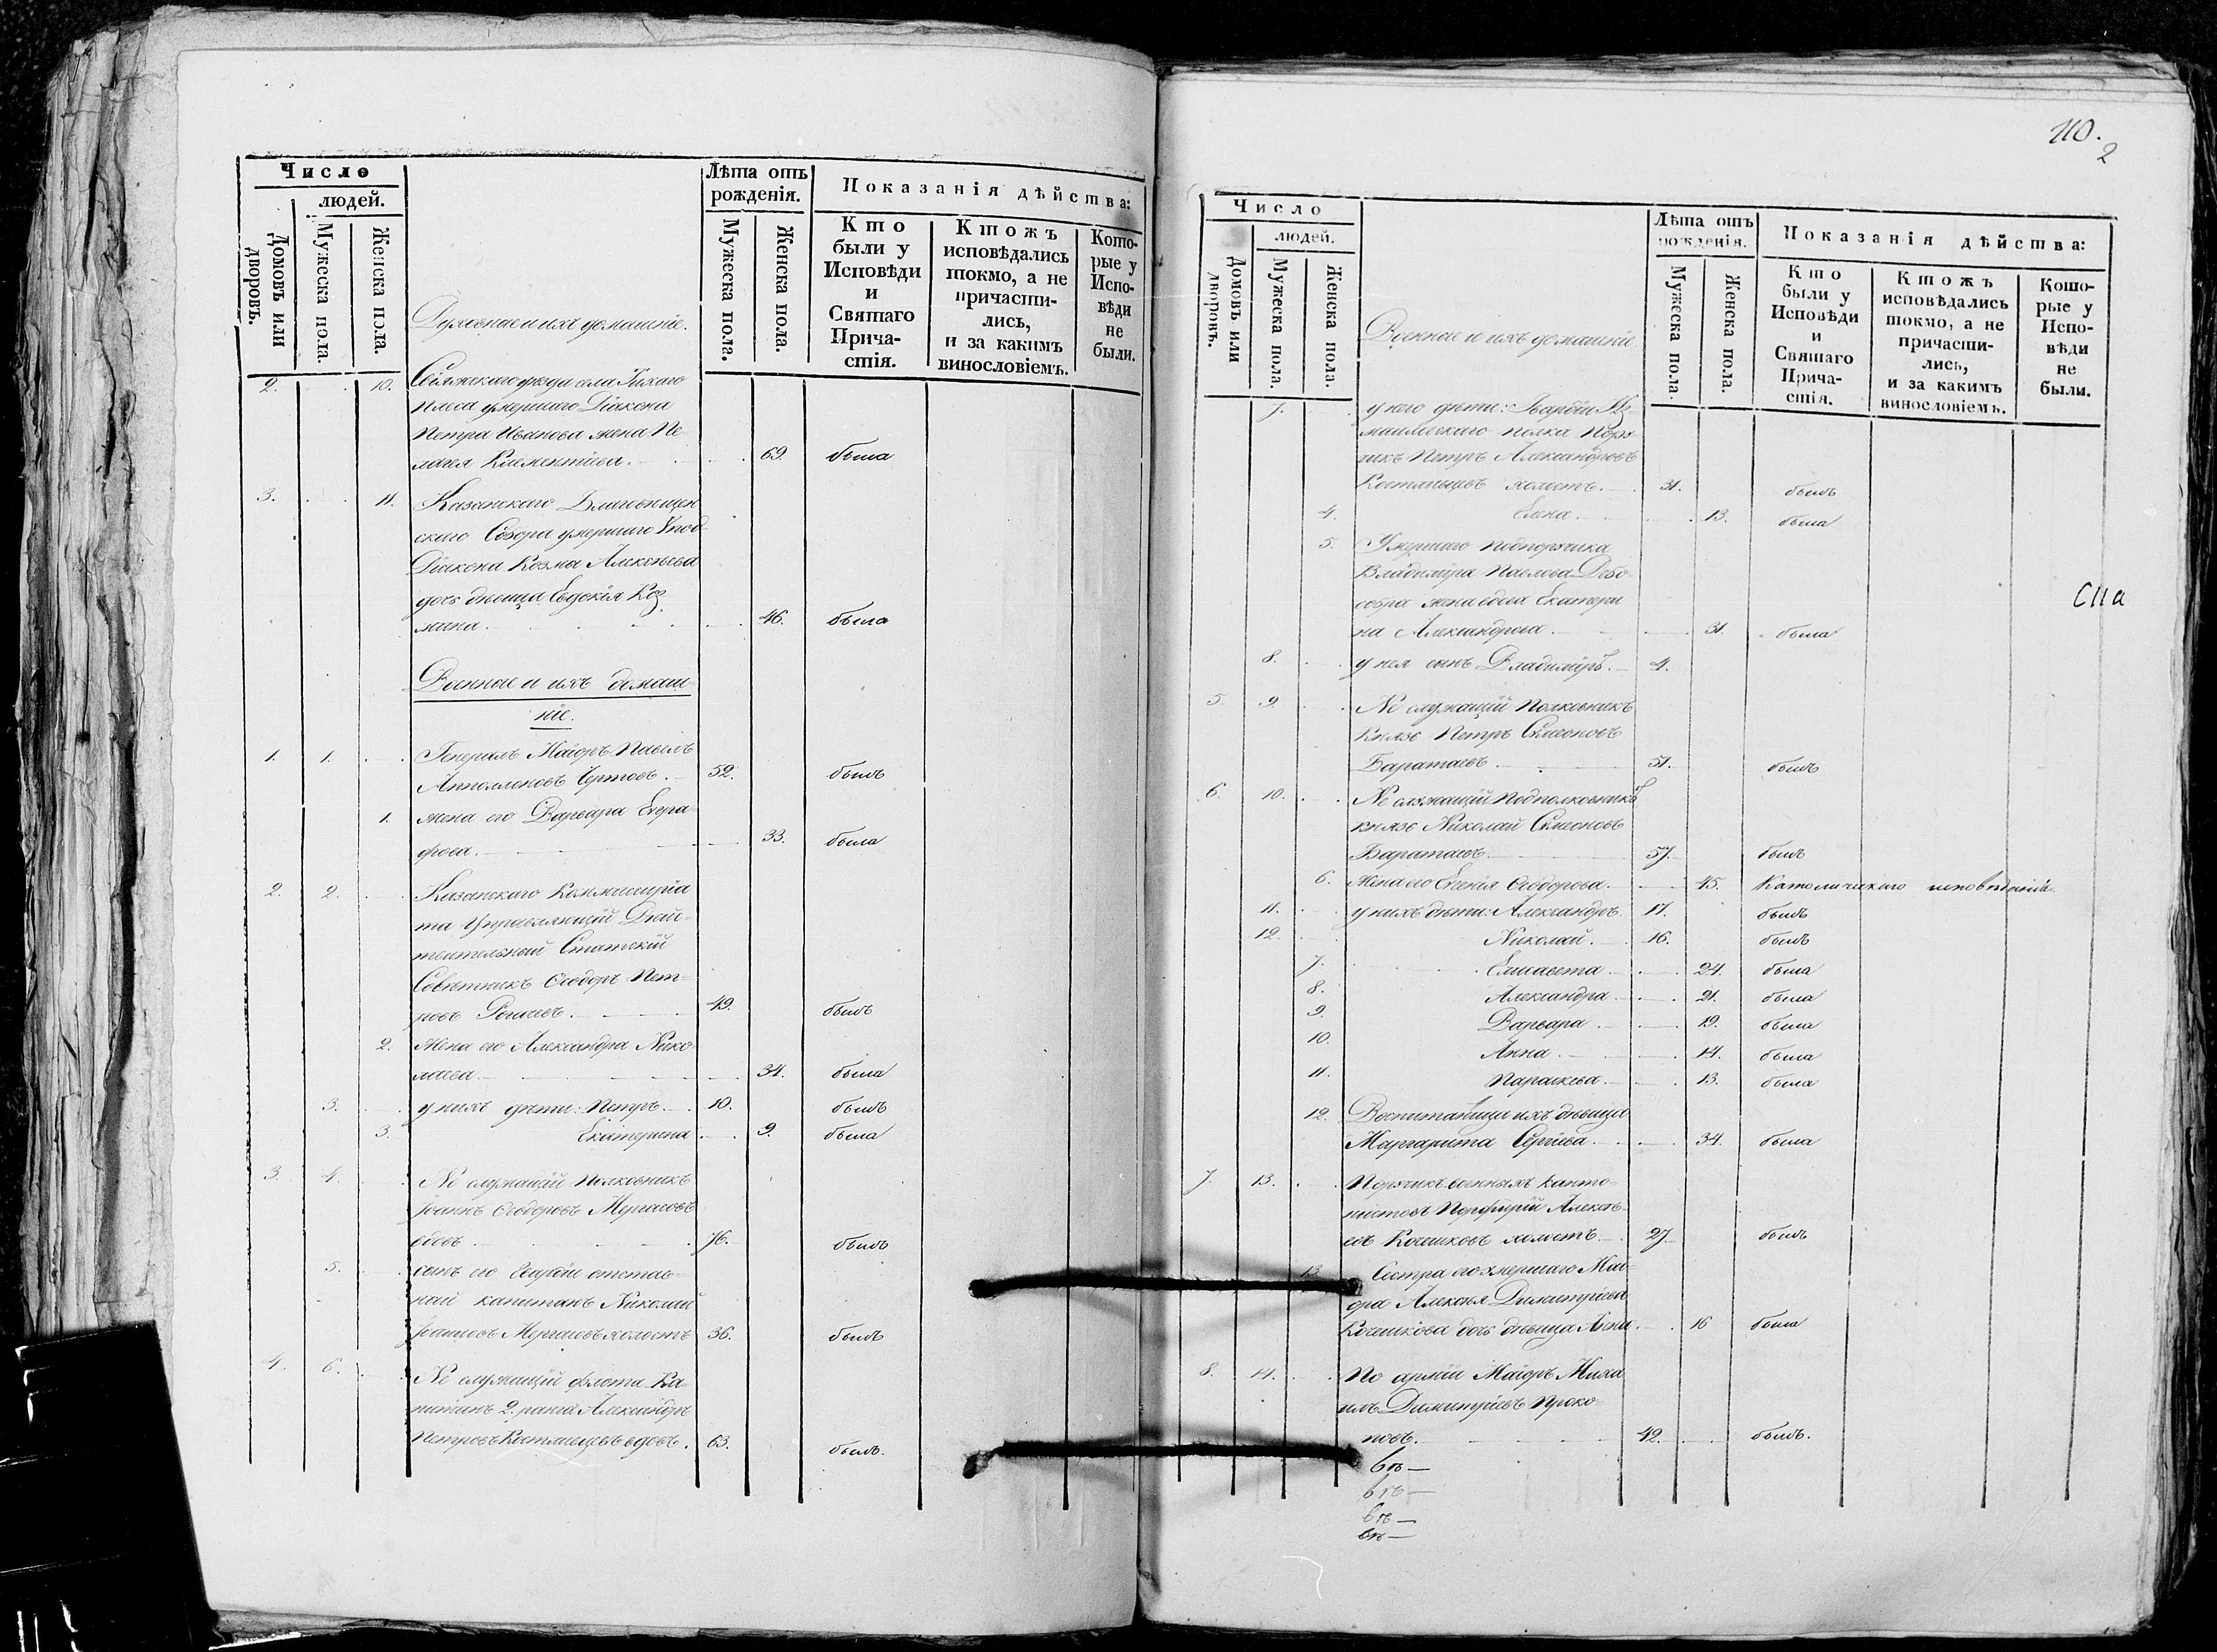 Число
людей.
Домовъ или дворовъ.
Мужеска пола.
Женска пола.
Духовные и ихъ домашніе.
Лѣта отъ рожденія.
Мужеска пола.
Женска пола.
Показанія дѣйства:
Кто были у Исповѣди и Святаго Причастія.
Ктожъ исповѣдались токмо, а не причастились, и за какимъ винословіемъ.
Которые у Исповѣди не были.
2. 10. Свіяжскаго уѣзда села
Плеса умершаго Діакона
Петра Иванова жена Пе-
лагея Климентіева. 69. была
3. 11. Казанскаго Благовѣщен
скаго Собора умершаго
Діакона Козмы Алексѣева
дочь дѣвица Евдокія Коз
мина. 46. была
Военные и ихъ домаш-
ніе.
1. 1. Генералъ Маіоръ Павелъ
Апполоновъ Чертовъ. 52. былъ
1. жена его Варвара Евгра-
фова. 33. была
2. 2. Казанскаго Коммисарія
та Управляющій Дѣй-
ствительный Статскій
Совѣтникъ Ѳеодоръ Пет-
ровъ 49. былъ
2. Жена его Александра Нико
лаева. 34. была
3. у нихъ дѣти: Петръ. 10. былъ
3. Екатерина 9. была
3. 4. Не служащій Полковникъ
Іоаннъ Ѳеодоровъ Мергасовъ
вдовъ 76. былъ
5. сынъ его Гвардіи отстав-
ной капитанъ Николай
Іоанновъ Мергасовъ холостъ 36. былъ
4. 6. Не служащій флота Ка-
питанъ 2. ранга Александръ
Петровъ Костливцевъ вдовъ. 63. былъ.
110.
2
Число
людей.
Домовъ или дворовъ.
Мужеска пола.
Женска пола.
Военные и ихъ домашніе
Лѣта отъ рожденія.
Мужеска пола.
Женска пола.
Показанія дѣйства:
Кто были у Исповѣди и Святаго Причастія.
Ктожъ исповѣдались токмо, а не причастились, и за какимъ винословіемъ.
Которые у Исповѣди не были.
7. у него дѣти: Гвардіи Из
маиловскаго полка Пору
чикъ Петръ Александровъ
Костливцевъ холостъ. 31. былъ
4. Елена. 13. была
5. Умершаго подпоручика
Владиміра Павлова
жена вдова Екатери
на Александрова. 31. была
СПа
8. у нея сынъ Владиміръ. 4.
5. 9. Не служащій Полковникъ
Князь Петръ Симеоновъ
Баратаевъ. 51. былъ
6. 10. Не служащій Подполковникъ
Князь Николай Симеоновъ
Баратаевъ. 57. былъ
6. Жена его Евгенія Ѳеодорова. 45. Католическаго исповѣданія
11. у нихъ дѣти: Александръ. 17. былъ
12. Николай. 16. былъ
7. Елисавета 24. была
8. Александра 21. была
9. Варвара 19. была
10. Анна. 14. была
11. Параскева. 13. была
12. Воспитанница ихъ дѣвица
Маргарита Сергіева. 34. была
7. 13. Поручикъ военныхъ канто-
нистовъ Порфирій Алексѣ-
евъ Колешковъ холостъ. 27. былъ
13. Сестра его умершаго Маі-
ора Алексѣя Димитріева
дочь дѣвица Анна. 16 была
8. 14. По арміи Маіоръ Миха
илъ Димитріевъ Проко-
повъ. 42. былъ.